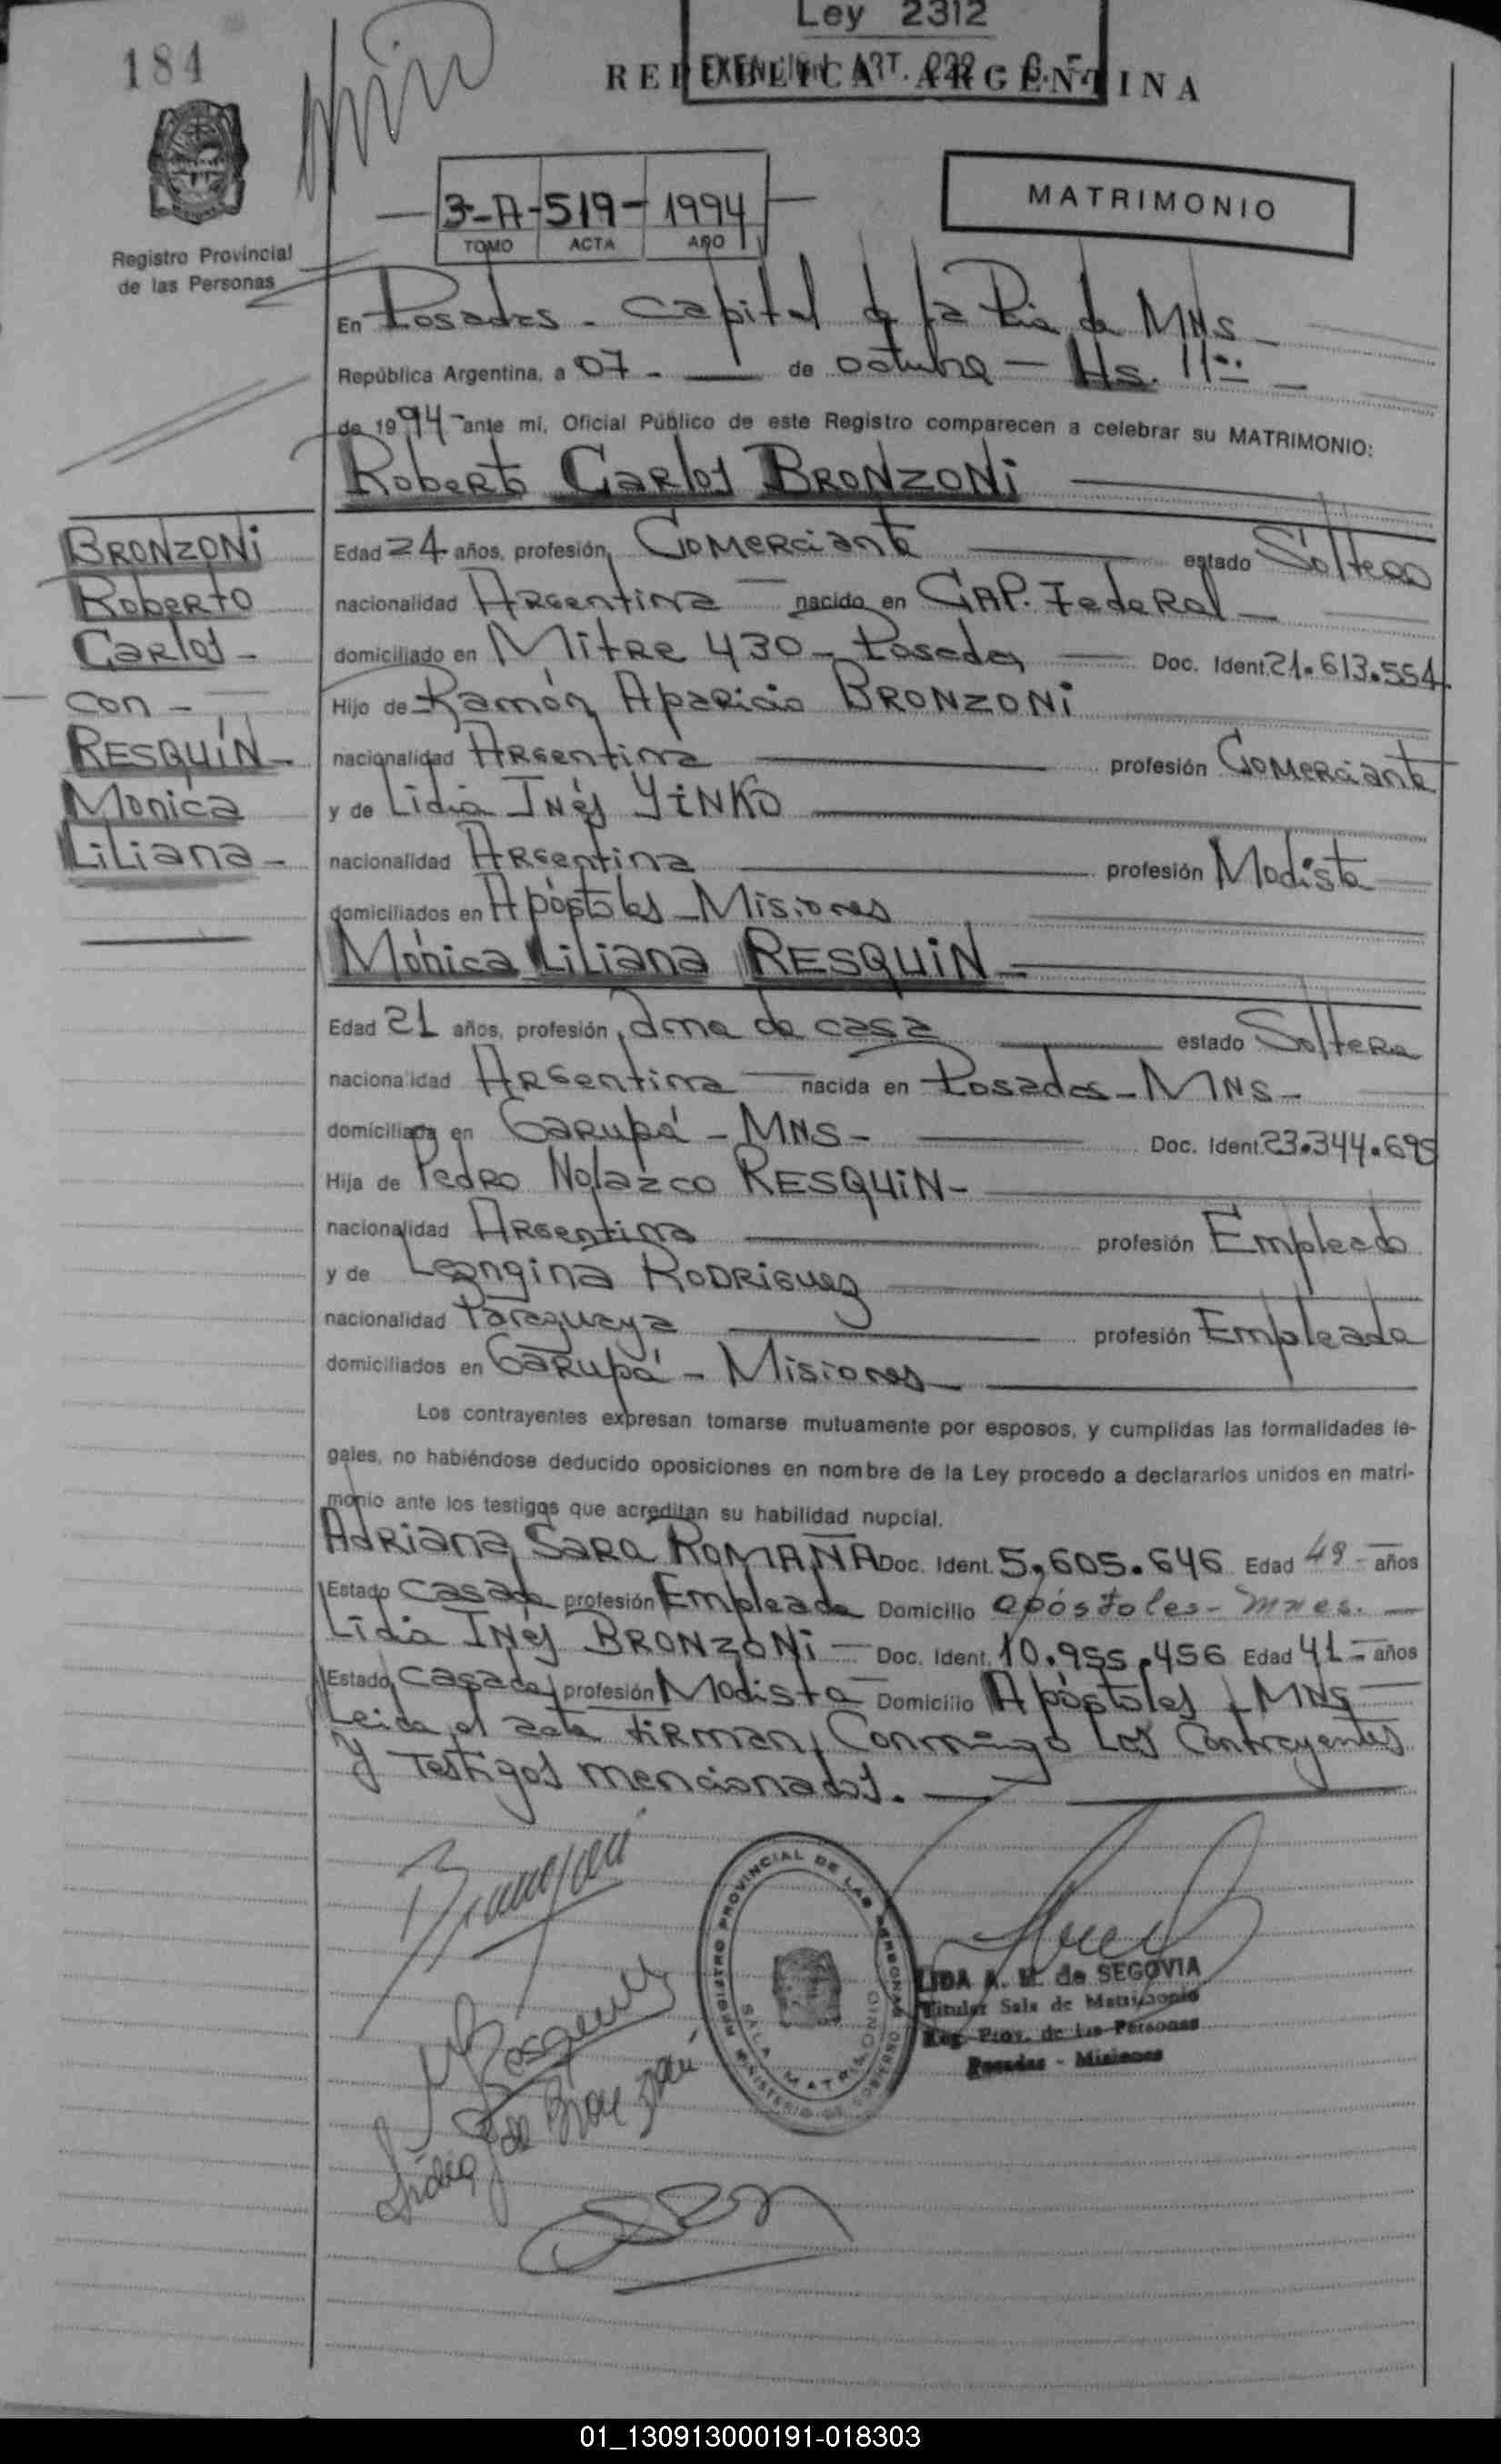 Ley 2312
184
REPUBLICA ARGENTINA
3-A-519-1994
TOMO ACTA AÑO
MATRIMONIO
Registro Provincial
de las Personas
En Posadas - Capital de la Pcia de MNS -
República Argentina, a 07 - de octubre - Hs. 11
de 1994 - ante mí, Oficial Público de este Registro comparecen a celebrar su MATRIMONIO:
Roberto Carlos BRONZONI
BRONZONI
Roberto
Carlos -
con -
RESQUIN -
Monica
Liliana -
Edad 24 años, profesión Comerciante estado Soltero
nacionalidad Argentina nacido en CAP. Federal -
domiciliado en Mitre 430 - Posadas Doc. Ident. 21.613.554
Hijo de Ramón Aparicio BRONZONI
nacionalidad Argentina profesión Comerciante
y de Lidia Inés YINKO
nacionalidad Argentina profesión Modista
domiciliados en Apóstoles - Misiones
Mónica Liliana RESQUIN -
Edad 21 años, profesión ama de casa estado Soltera
nacionalidad Argentina nacida en Posadas - MNS -
domiciliada en Garupá - MNS - Doc. Ident. 23.344.695
Hija de Pedro Nolazco RESQUIN -
nacionalidad Argentina profesión Empleado
y de Leongina RODRIGUEZ
nacionalidad Paraguaya profesión Empleada
domiciliados en Garupá - Misiones -
Los contrayentes expresan tomarse mutuamente por esposos, y cumplidas las formalidades le-
gales, no habiéndose deducido oposiciones en nombre de la Ley procedo a declararlos unidos en matri-
monio ante los testigos que acreditan su habilidad nupcial.
Adriana Sara ROMAÑA Doc. Ident. 5.605.646 Edad 49 - años
Estado Casada profesión Empleada Domicilio apóstoles - mnes. -
Lidia Ines BRONZONI - Doc. Ident. 10.955.456 Edad 41 - años
Estado Casada profesión Modista Domicilio Apóstoles - MNS -
Leida el acta firman, Conmigo Los Contrayentes
Y Testigos mencionados. -
REGISTRO PROVINCIAL DE LAS PERSONAS
SALA MATRIMONIO
MINISTERIO DE GOBIERNO
LIDA A. M. de SEGOVIA
Titular Sala de Matrimonio
Reg. Prov. de las Personas
Posadas - Misiones
Lidia de Bronzoni
01_130913000191-018303